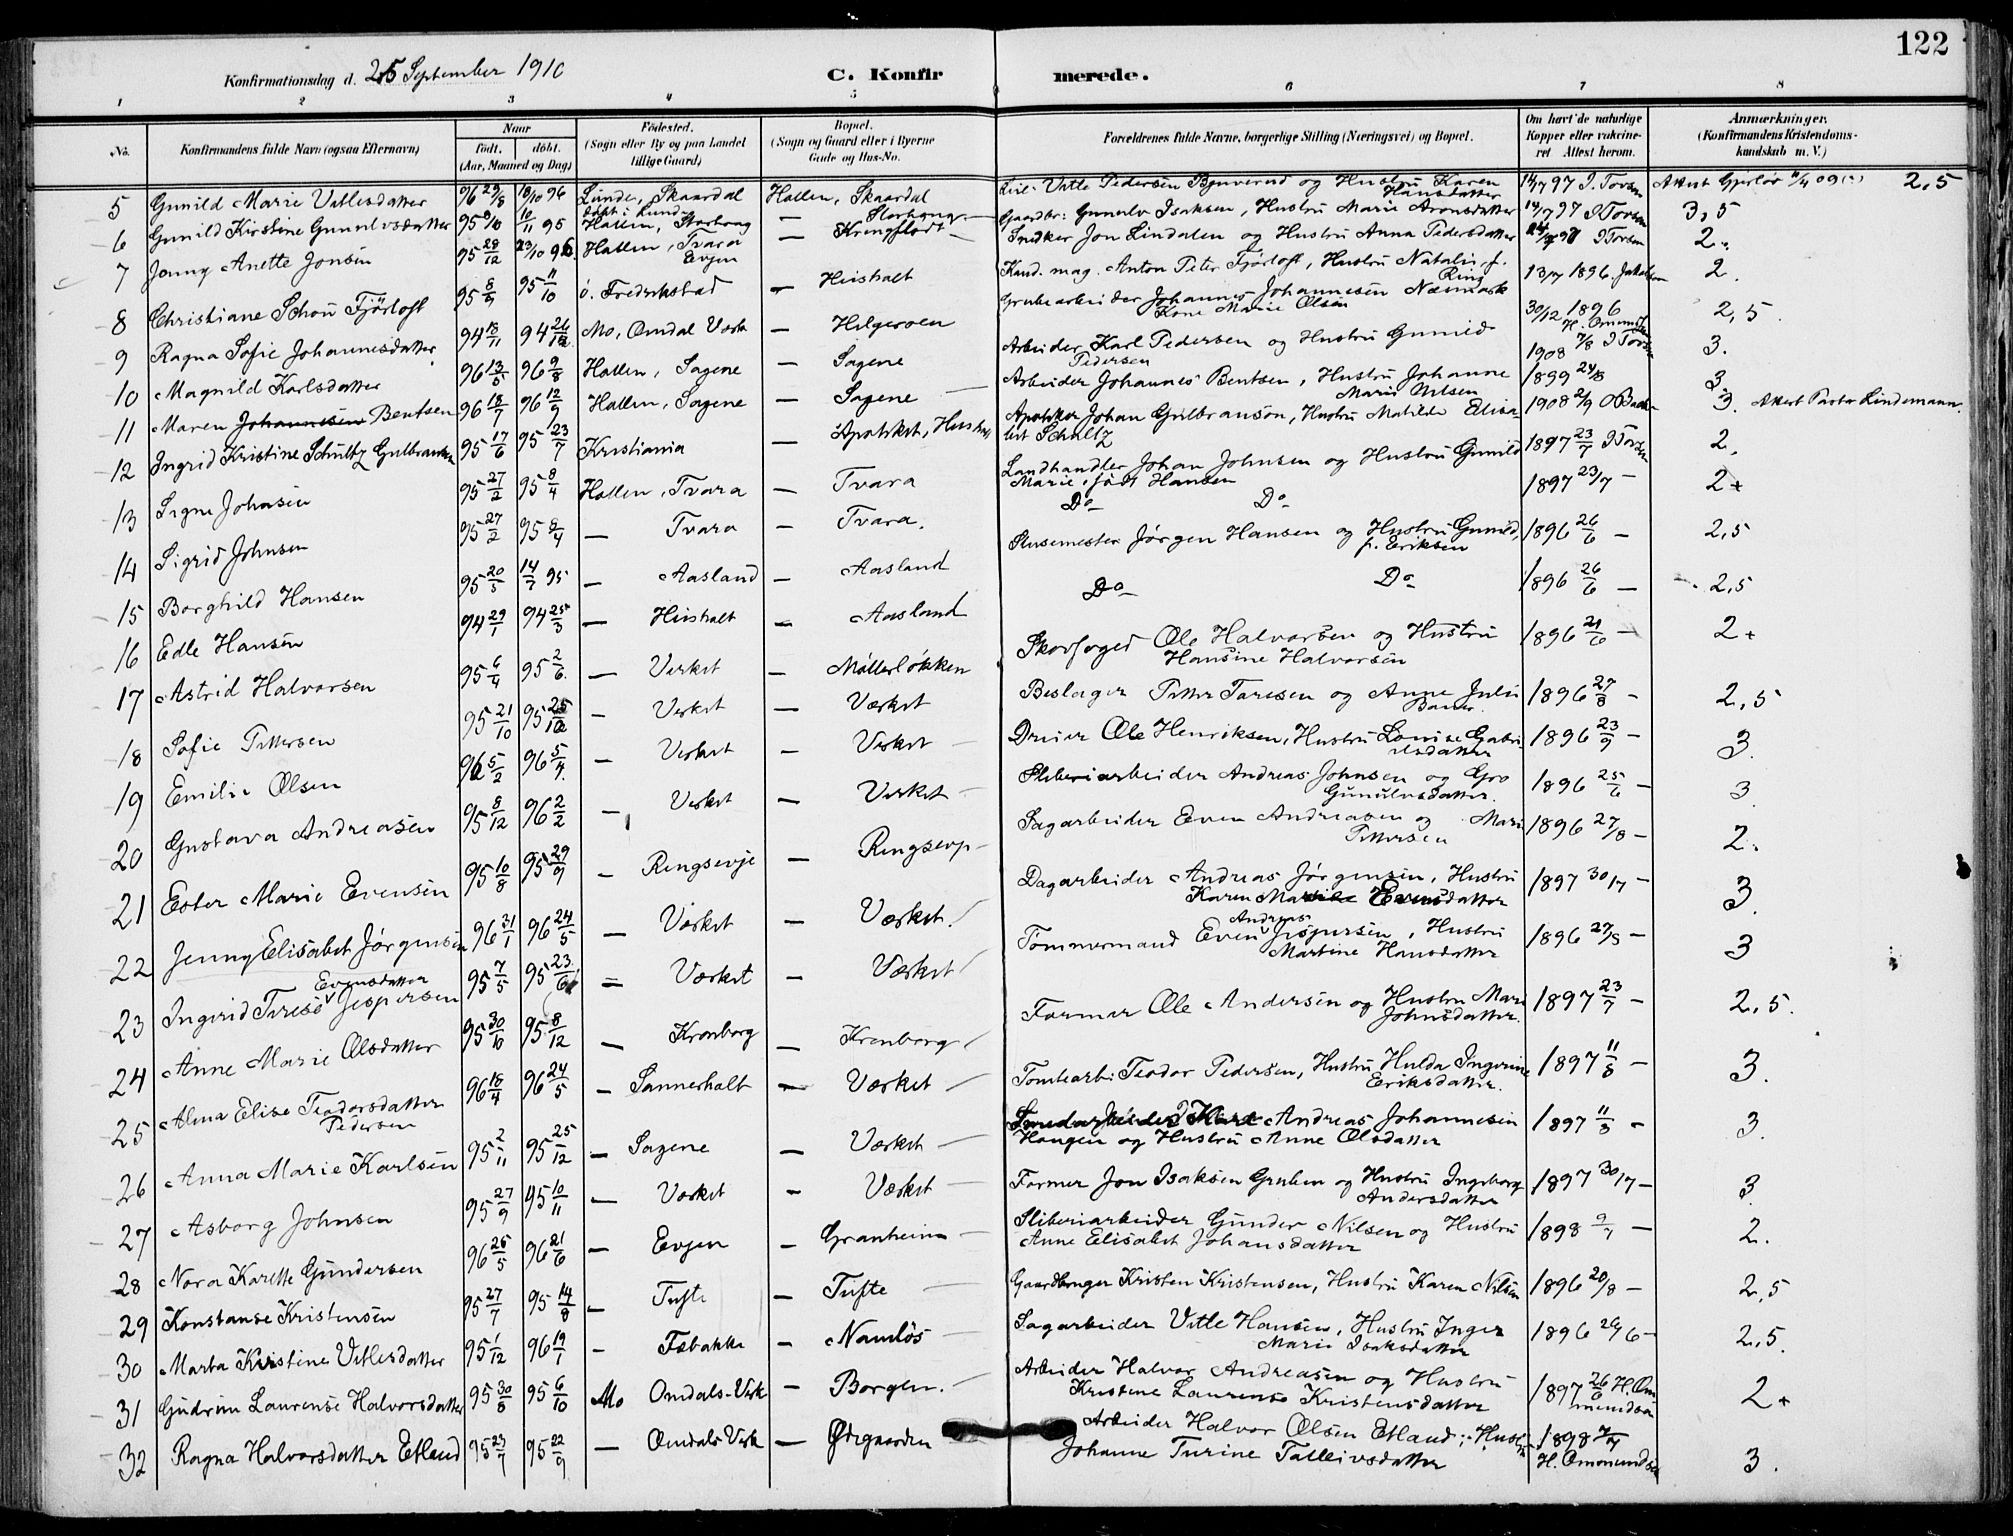 122
Konfirmationsdag d. 25 September 1910
C. Konfirmerede.
1 2 3 4 5 6 7 8
No. Konfirmandens fulde Navn (ogsaa Efternavn) Naar født. døbt. (Aar, Maaned og Dag) Fødested. (Sogn eller By og paa Landet tillige Gaard) Bopæl. (Sogn og Gaard eller i Byerne Gade og Hus-No. Forældrenes fulde Navne, borgerlige Stilling (Næringsvei) og Bopæl. Om havt de naturlige Kopper eller vakcineret Attest herom. Anmærkninger. (Konfirmandens Kristendomskundskab m. V.)
5 Gunild Marie Vetlesdatter 96 29/8 18/10 96 Lunde, Skaardal døbt i Lunde Hollen, Skaardal Vetle Pedersen og Hustru Karen Hansdatter 14/7 97 I. Torsen 2,5
6 Gunild Kirstine Gunulvsdatter 95 10/11 95 Hollen, Storhaug — Storhaug Gaardbr: Gunulv Isaksen, Hustru Marie Aronsdatter 14/7 97 I Torsen 3,5
7 Jenny Anette Jonsen 95 28/12 23/10 96 Hollen, Tvara Evjen — Kringlodt Snedker Jon Lindalen og Hustru Anna Pedersdatter I Torsen 2
8 Christiane Schou Fjørtoft 95 8/9 95 11/10 ö. Fredrikstad — Heishalt Kand. mag. Anton Peter Fjørtoft, Hustru Natalie, f. Ring 13/7 1896. 2.
9 Ragna Sofie Johannesdatter 94 18/11 94 26/12 Mo, Omdal Værk — Helgeroen Grubearbeider Johannes Johannesen Næsmark Kone Marie Olsen 30/12 1896 H. Omundsen 2,5
10 Magnild Karlsdatter 96 13/5 96 9/8 Hollen, Sagene — Sagene Arbeider Karl Pedersen og Hustru Gunild Pedersen 1908 7/8 I Torsen 3.
11 Maren Johannesen Bentsen 96 18/7 96 12/9 Hollen, Sagene — Sagene Arbeider Johannes Bentsen, Hustru Johanne Marie Nilsen 1899 24/8 3
12 Ingrid Kristine Schultz Gulbranson 95 17/6 95 23/7 Kristiania — Apoteket, Heishalt Apotheker Johan Gulbranson, Hustru Matilde Elisabet Schultz 1908 2/9 3. Attest Pastor Lindemann.
13 Signe Johnsen 95 27/2 95 8/4 Hollen, Tvara — Tvara Landhandler Johan Johnsen og Hustru Gunild Marie, født Hansen 1897 23/7 I Torsen 2.
14 Sigrid Johnsen 95 27/2 95 8/4 — Tvara — Tvara. Do Do 1897 23/7 — 2+
15 Borghild Hansen 95 20/5 14/7 95 — Aasland — Aasland Slusemester Jørgen Hansen og Hustru Gunild, f. Eriksen 1896 26/6 — 2,5
16 Edle Hansen 94 29/1 94 25/3 — Heishalt — Aasland Do Do 1896 26/6 — 2,5
17 Astrid Halvorsen 95 6/4 95 2/6 — Verket — Møllerløkken Skovfoged Ole Halvorsen og Hustru Hansine Halvorsen 1896 29/6 — 2+
18 Sofie Pettersen 95 21/10 95 25/12 — Verket — Værket Beslager Petter Taresen og Anne Julie 1896 27/8 — 2,5
19 Emilie Olsen 96 5/2 96 5/4 — Verket — Verket Dreier Ole Henriksen, Hustru Lovise Gabrielsdatter 1896 23/9 — 3.
20 Gustava Andreasen 95 8/12 96 2/2 — Verket — Verket Sliberiarbeider Andreas Johnsen og Gro Gunulvsdatter. 1896 25/6 — 3
21 Ester Marie Evensen 95 10/8 95 29/9 — Ringsevje — Ringsevj Sagarbeider Even Andreasen og Marie Pettersen 1896 27/8 — 2.
22 Jenny Elisabet Jørgensen 96 31/1 96 24/5 — Værket — Værket Dagarbeider Andreas Jørgensen, Hustru Karen Evensdatter 1897 30/7 — 3.
23 Ingrid Terese Evensdatter Jespersen 95 7/5 95 23/6 — Værket — Værket Tømmermand Even Andreas Jespersen, Hustru Martine Hansdatter 1896 27/8 — 3
24 Anne Marie Olsdatter 95 30/10 95 8/12 — Kronborg — Kronborg Former Ole Andersen og Hustru Mari Johnsdatter. 1897 23/7 — 2,5.
25 Alma Elise Teodorsdatter Pedersen 96 18/4 96 24/5 — Sannerhalt — Værket Tomtearb: Teodor Pedersen, Hustru Hulda Ingerine Eriksdatter. 1897 11/8 — 3.
26 Anna Marie Karlsen 95 2/11 95 25/12 — Sagene — Værket Andreas Johannesen Haugen og Hustru Anne Olsdatter 1897 11/8 — 3.
27 Asborg Johnsen 95 27/9 95 10/11 — Værket — Værket Former Jon Isaksen Gruben og Hustru Ingeborg Andersdatter 1897 30/7 — 3
28 Nora Karette Gundersen 96 25/5 96 21/6 — Evjen — Granheim Sliberiarbeider Gunder Nilsen og Hustru Anne Elisabet Johansdatter 1898 9/7 — 2.
29 Konstanse Kristensen 95 27/7 95 14/8 — Tufte — Tufte Gaardbruger Kristen Kristensen, Hustru Karen Nilsen 1896 20/8 — 2,5
30 Marta Kristine Vetlesdatter 95 1/12 96 19/1 — Febakke — Namløs Sagarbeider Vetle Hansen, Hustru Inger Marie Isaksdatter 1896 29/6 — 2,5.
31 Gudrun Laurense Halvorsdatter 95 30/8 95 6/10 Mo Omdals-Verk — Borgen. Arbeider Halvor Andreasen og Hustru Kristene Laurense Kristensdatter 1897 26/6 H. Omundsen 2+
32 Ragna Halvorsdatter Etland 95 23/7 95 22/9 — Omdals Verk — Ødegaarden Arbeider Halvor Olsen Etland; Hustru Johanne Turine Talleivsdatter 1898 7/7 H. Omomundsen 3.